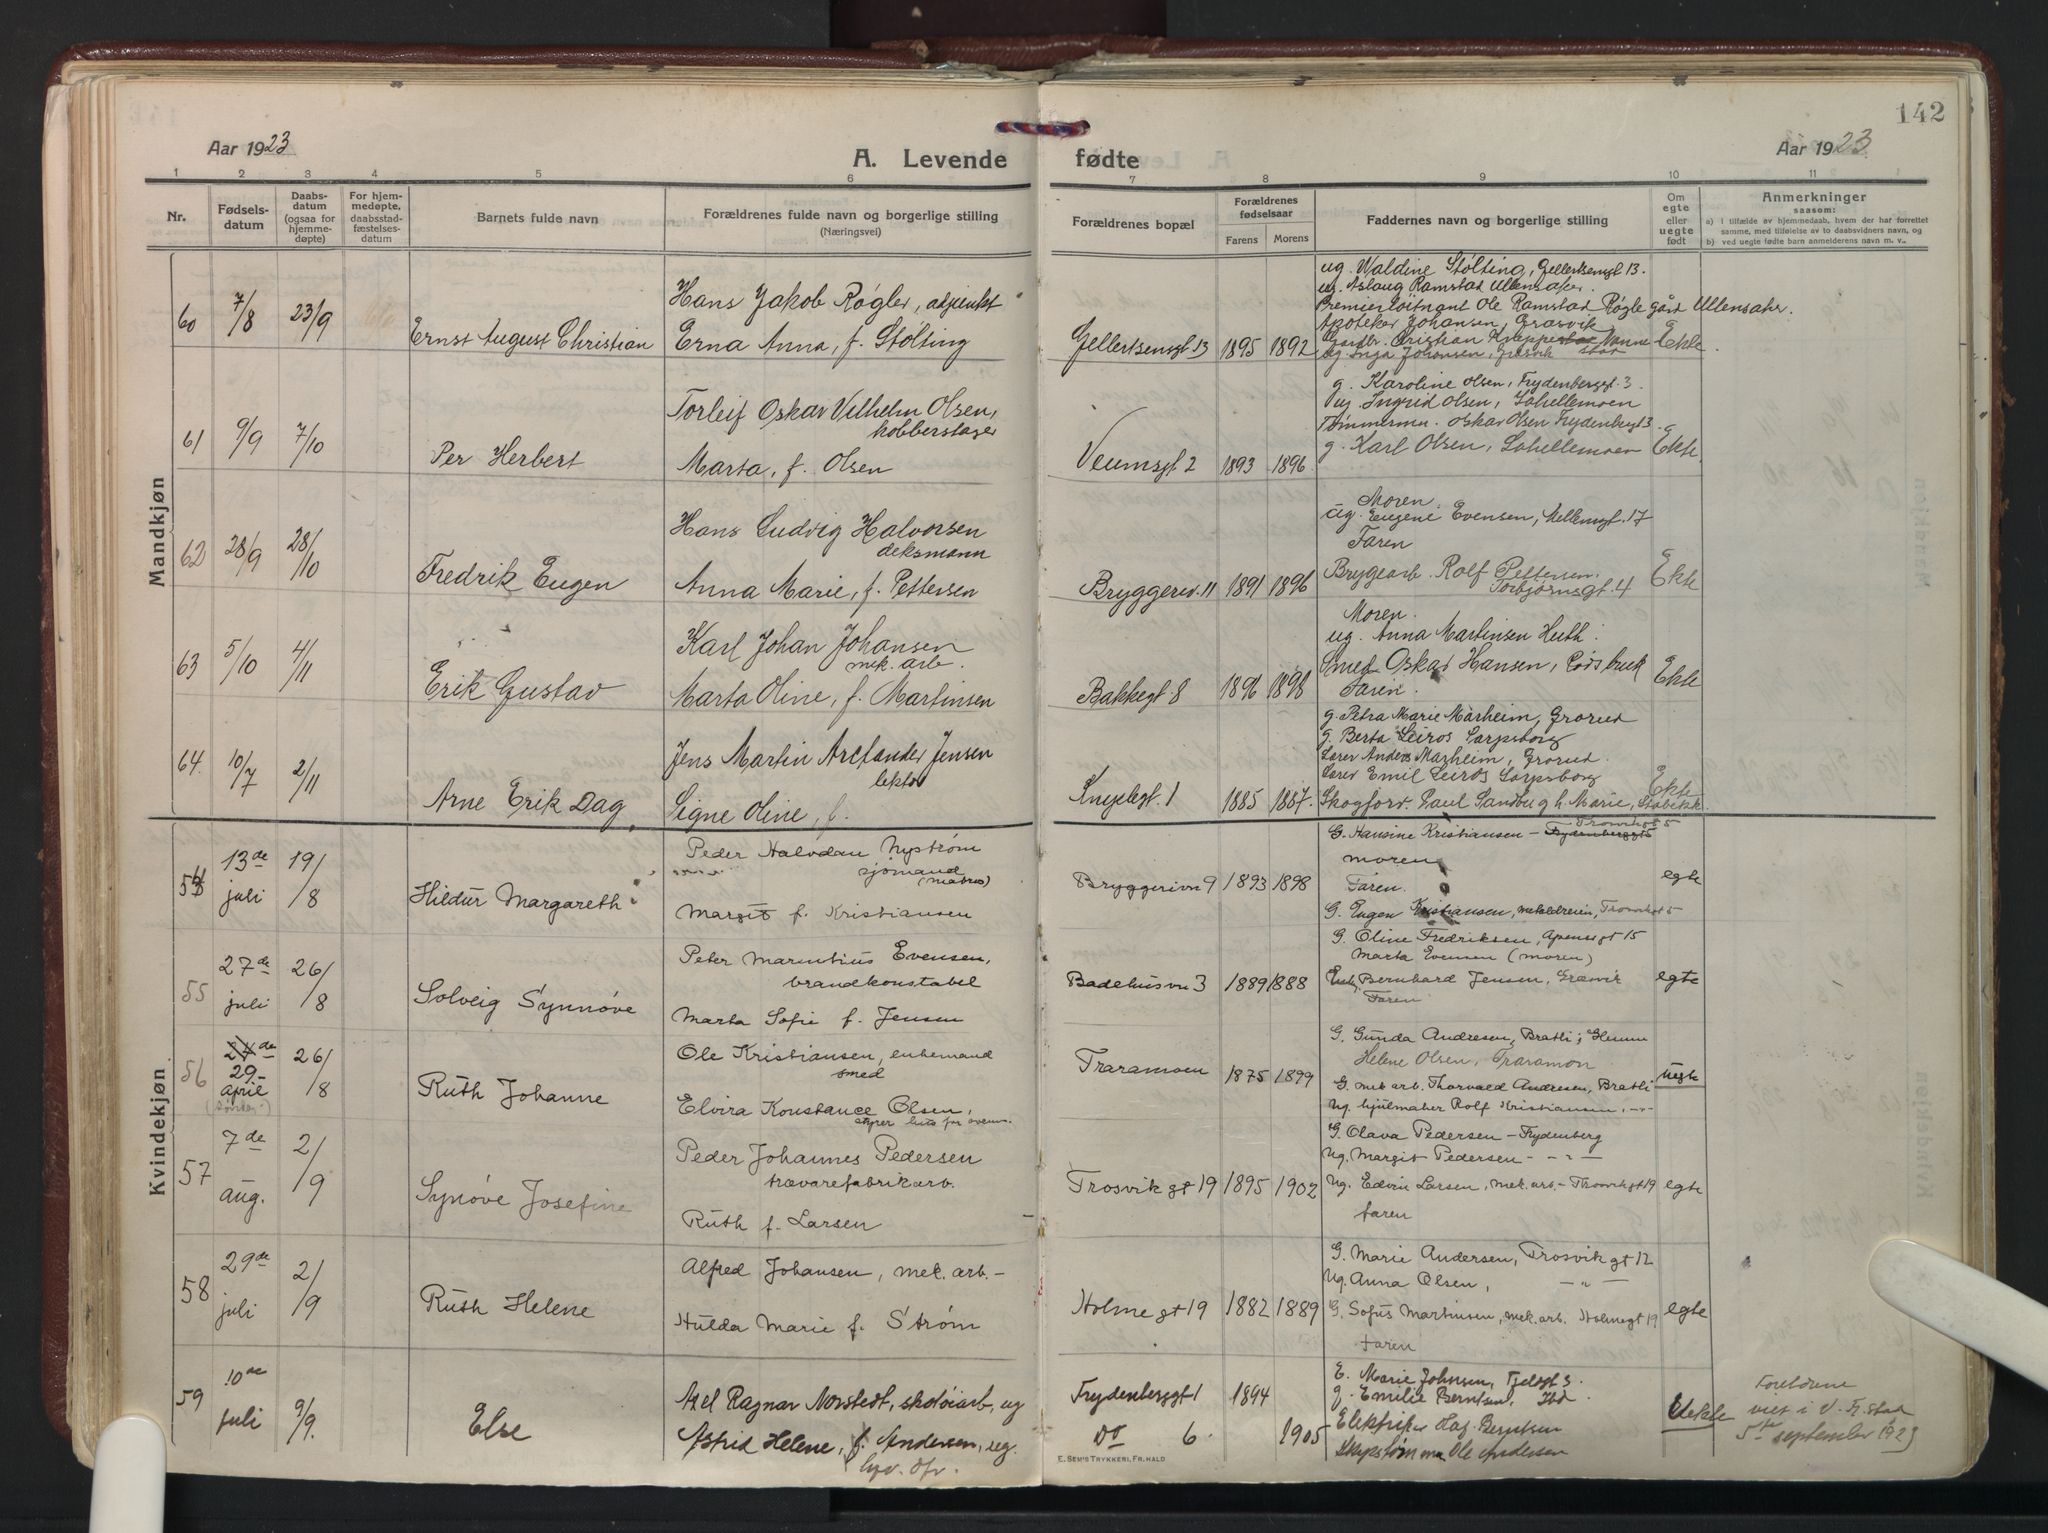 142
Aar 1923
A. Levende fødte
Aar 1923
1 2 3 4 5 6 7 8 9 10 11
Nr.
Fødsels-
datum
Daabs-
datum
(ogsaa for
hjemme-
døpte)
For hjem-
medøpte,
daabsstad-
fæstelses-
datum
Barnets fulde navn
Forældrenes fulde navn og borgerlige stilling
(Næringsvei)
Forældrenes bopæl
Forældrenes
fødselsaar
Farens Morens
Faddernes navn og borgerlige stilling
Om
egte
eller
uegte
født
Anmerkninger
saasom:
a) i tilfælde av hjemmedaab, hvem der har forrettet
samme, med tilføielse av to daabsvidners navn, og
b) ved uegte fødte barn anmelderens navn m. v..
Mandkjøn
60 7/8 23/9 Ernst August Christian
Hans Jakob Røgler, adjunkt
Erna Anna, f. Stølting
Gellertsensgt. 13 1895 1892
ug. Waldine Stølting, Gellertsensgt 13.
ug. Aslaug Ramstad Ullensaker.
Premierløitnant Ole Ramstad Røgle gård Ullensakr.
Apoteker Johansen, Græsvik
Gardbr. Cristian Nanne
ug. Inga Johansen, Græsvik
Ekte
61 9/9 7/10 Per Herbert
Torleif Oskar Vilhelm Olsen,
kobberslager
Marta, f. Olsen
Veumsgt 2 1893 1896
g. Karoline Olsen, Frydenbergt. 3
ug. Ingrid Olsen, Lahellemoen
Tømmerm. Oskar Olsen Frydenbergt 3
g. Karl Olsen, Lahellemoen
Ekte
62 28/9 28/10 Fredrik Eugen
Hans Ludvig Halvorsen
deksmann
Anna Marie, f. Pettersen
Bryggeriv. 11 1891 1896
Moren
ug. Eugene Evensen, Mellemgt. 17
Faren
Brygearb. Rolf Pettersen
Torbjørnsgt. 4
Ekte
63 5/10 4/11 Erik Gustav
Karl Johan Johansen
mek. arb.
Marta Oline, f. Martinsen
Bakkegt. 8 1896 1898
Moren.
ug. Anna Martinsen Huth.
Smed Oskar Hansen,
Faren.
Ekte
64. 10/7 2/11 Arne Erik Dag,
Jens Martin Arctander Jensen
lektor
Signe Oline, f.
Kniplegt. 1 1885 1887.
g. Petra Marie Marheim, Grorud
g. Berta Leiros Sarpsborg
Lærer Anders Marheim, Grorud.
Lærer Emil Leiros Sarpsborg
Skogforv. Paul Sandberg h. Marie, Stabekk.
Ekte
Kvindekjøn
54 13de juli 19/8 Hildur Margareth
Peder Halvdan Nystrøm
sjømand
(matros)
Margit f. Kristiansen
Bryggerivn 9 1893 1898
G. Hansine Kristiansen – Frydenberggt 5 Trosvikgt 5
moren
Faren.
G. Eugen Kristiansen, metaldreier, Trosvikgt 5
egte
55 27de juli 26/8 Solveig Synnøve
Peter Marentius Evensen,
brandkonstabel
Marta Sofie f. Jensen
Badehusvn 3 1889 1888
G. Oline Fredriksen, Apenesgt 15
Marta Evensen (moren)
Enkem. Bernhard Jensen, Græsvik
Faren
egte
56 29– april 26/8 Ruth Johanne
Ole Kristiansen, enkemand
smed
Elvira Konstance Olsen,
styrer hus for ovenn.
Traramoen 1875 1899
G. Gunda Andresen, Bratli, Glemm
Helene Olsen, Traramoen
G. mek arb. Thorvald Andresen, Bratli
Ug. hjulmaker Rolf Kristiansen, –"–
uegte
57 7de aug. 2/9 Synøve Josefine
Peder Johannes Pedersen
trævarefabrikarb.
Ruth f. Larsen
Trosvik gt 19 1895 1902
G. Olava Pedersen – Frydenberg
Ug. Margit Pedersen – – " –
Ug. Edvin Larsen, mek. arb. – Trosvikgt 19
faren
egte
58 29de juli 2/9 Ruth Helene
Alfred Johansen, mek. arb. –
Hulda Marie f. Strøm
Holmegt 19 1882 1889
G. Marie Andersen, Trosvik gt 12
Ug. Anna Olsen, – " –
G. Sofus Martinsen, mek. arb. Holmegt 19
Faren
egte
59 10de juli 9/9. Else
Axel Ragnar Norstedt, skotøiarb, ug
Astrid Helene, f. Andersen, ug.
Frydenberggt 1 1894
Do 6. 1905
E. Marie Johnsen, Fjeldgt 3.
g. Emilie Berntsen, Ibd
Elektriker Olaf Berntsen
Ole Andersen
Uekte
Foreldrene
viet i V. Fr.stad
5te september 1923
E. SEM'S TRYKKERI, FR.HALD